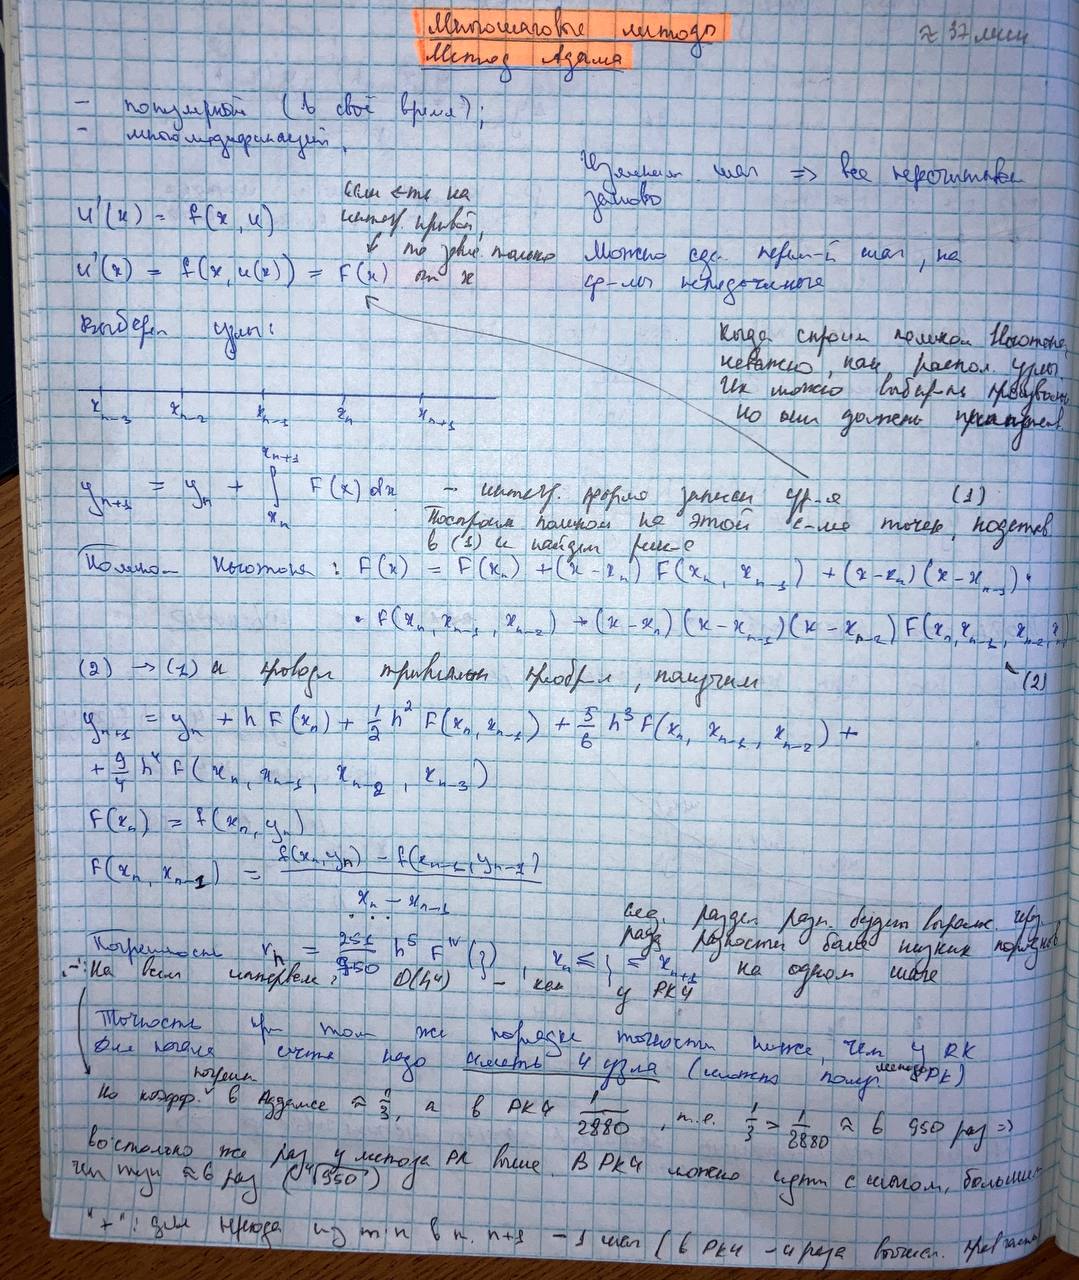 Многошаговые методы
≈ 37 мин
Метод Адамса
- популярный (в своё время);
- много модификаций;
Изменили шаг => все пересчитываем
заново
если есть на
интегр. кривой,
u'(x) = f(x, u)
то завис. только
u'(x) = f(x, u(x)) = F(x) от x
Можно сде. перем-й шаг, но
ф-лы
Выберем узлы:
Когда строим полином Ньютона,
неважно, как распол. узлы
Их можно выбирать произвольно
но они должны
x_{n-3} x_{n-2} x_{n-1} x_n x_{n+1}
y_{n+1} = y_n + ∫_{x_n}^{x_{n+1}} F(x) dx - интегр. форма записи ур-я (1)
Построим полином на этой с-ме точек, подстав
в (1) и найдём реш-е
Полином Ньютона: F(x) = F(x_n) + (x-x_n) F(x_n, x_{n-1}) + (x-x_n)(x-x_{n-1}) ·
· F(x_n, x_{n-1}, x_{n-2}) + (x-x_n)(x-x_{n-1})(x-x_{n-2}) F(x_n, x_{n-1}, x_{n-2},
(2)
(2) → (1) и проводя тривиальн преобр-я, получим
y_{n+1} = y_n + h F(x_n) + 1/2 h^2 F(x_n, x_{n-1}) + 5/6 h^3 F(x_n, x_{n-1}, x_{n-2}) +
+ 9/4 h^4 F(x_n, x_{n-1}, x_{n-2}, x_{n-3})
F(x_n) = f(x_n, y_n)
F(x_n, x_{n-1}) = (f(x_n, y_n) - f(x_{n-1}, y_{n-1})) / (x_n - x_{n-1})
. . .
след. раздел разн. будут выраже через
разд разности более низких порядков
Погрешность r_n = 251/750 h^5 F^{IV}(ξ), x_n ≤ ξ ≤ x_{n+1} на одном шаге
"-": На всем интервале: O(h^4) - как у РК4
Точность при том же порядке точности ниже, чем у РК
Для начала счета надо иметь 4 узла (можно получ методом РК)
погреш.
Но коэфф. в Адамсе ≈ 1/3, а в РК4 1/2880, т.е. 1/3 > 1/2880 ≈ в 950 раз =>
во столько же раз у метода РК выше. В РК4 можно идти с шагом, большим
чем тут ≈ 6 раз (∜950)
"+": для перехода из т n в т. n+1 - 1 шаг (в РК4 - 4 раза вычисл.